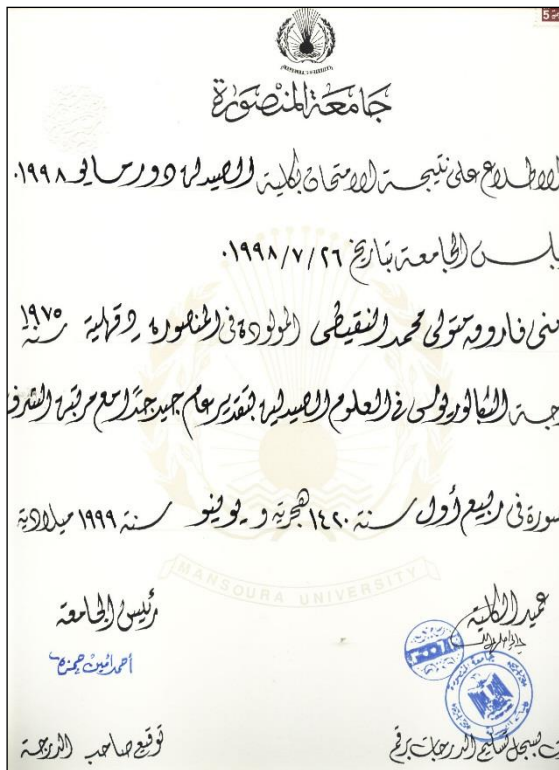 جامعة المنصورة
الاطلاع على نتيجة الامتحان بكلية الصيدلة دور مايو ١٩٩٨.
لس الجامعة بتاريخ ٢٦/٧/١٩٩٨.
منى فاروق متولى محمد النقيطى المولودة فى المنصورة دقهلية سنة ١٩٧٥
جة البكالوريوس فى العلوم الصيدلية بتقدير عام جيد جدًا مع مرتبة الشرف
صورة فى ربيع أول سنة ١٤٢٠ هجرية و يونيو سنة ١٩٩٩ ميلادية
MANSOURA UNIVERSITY
عميد الكلية
رئيس الجامعة
أحمد أمين حمزة
بسجل تسليم الدرجات برقم
توقيع صاحب الدرجة